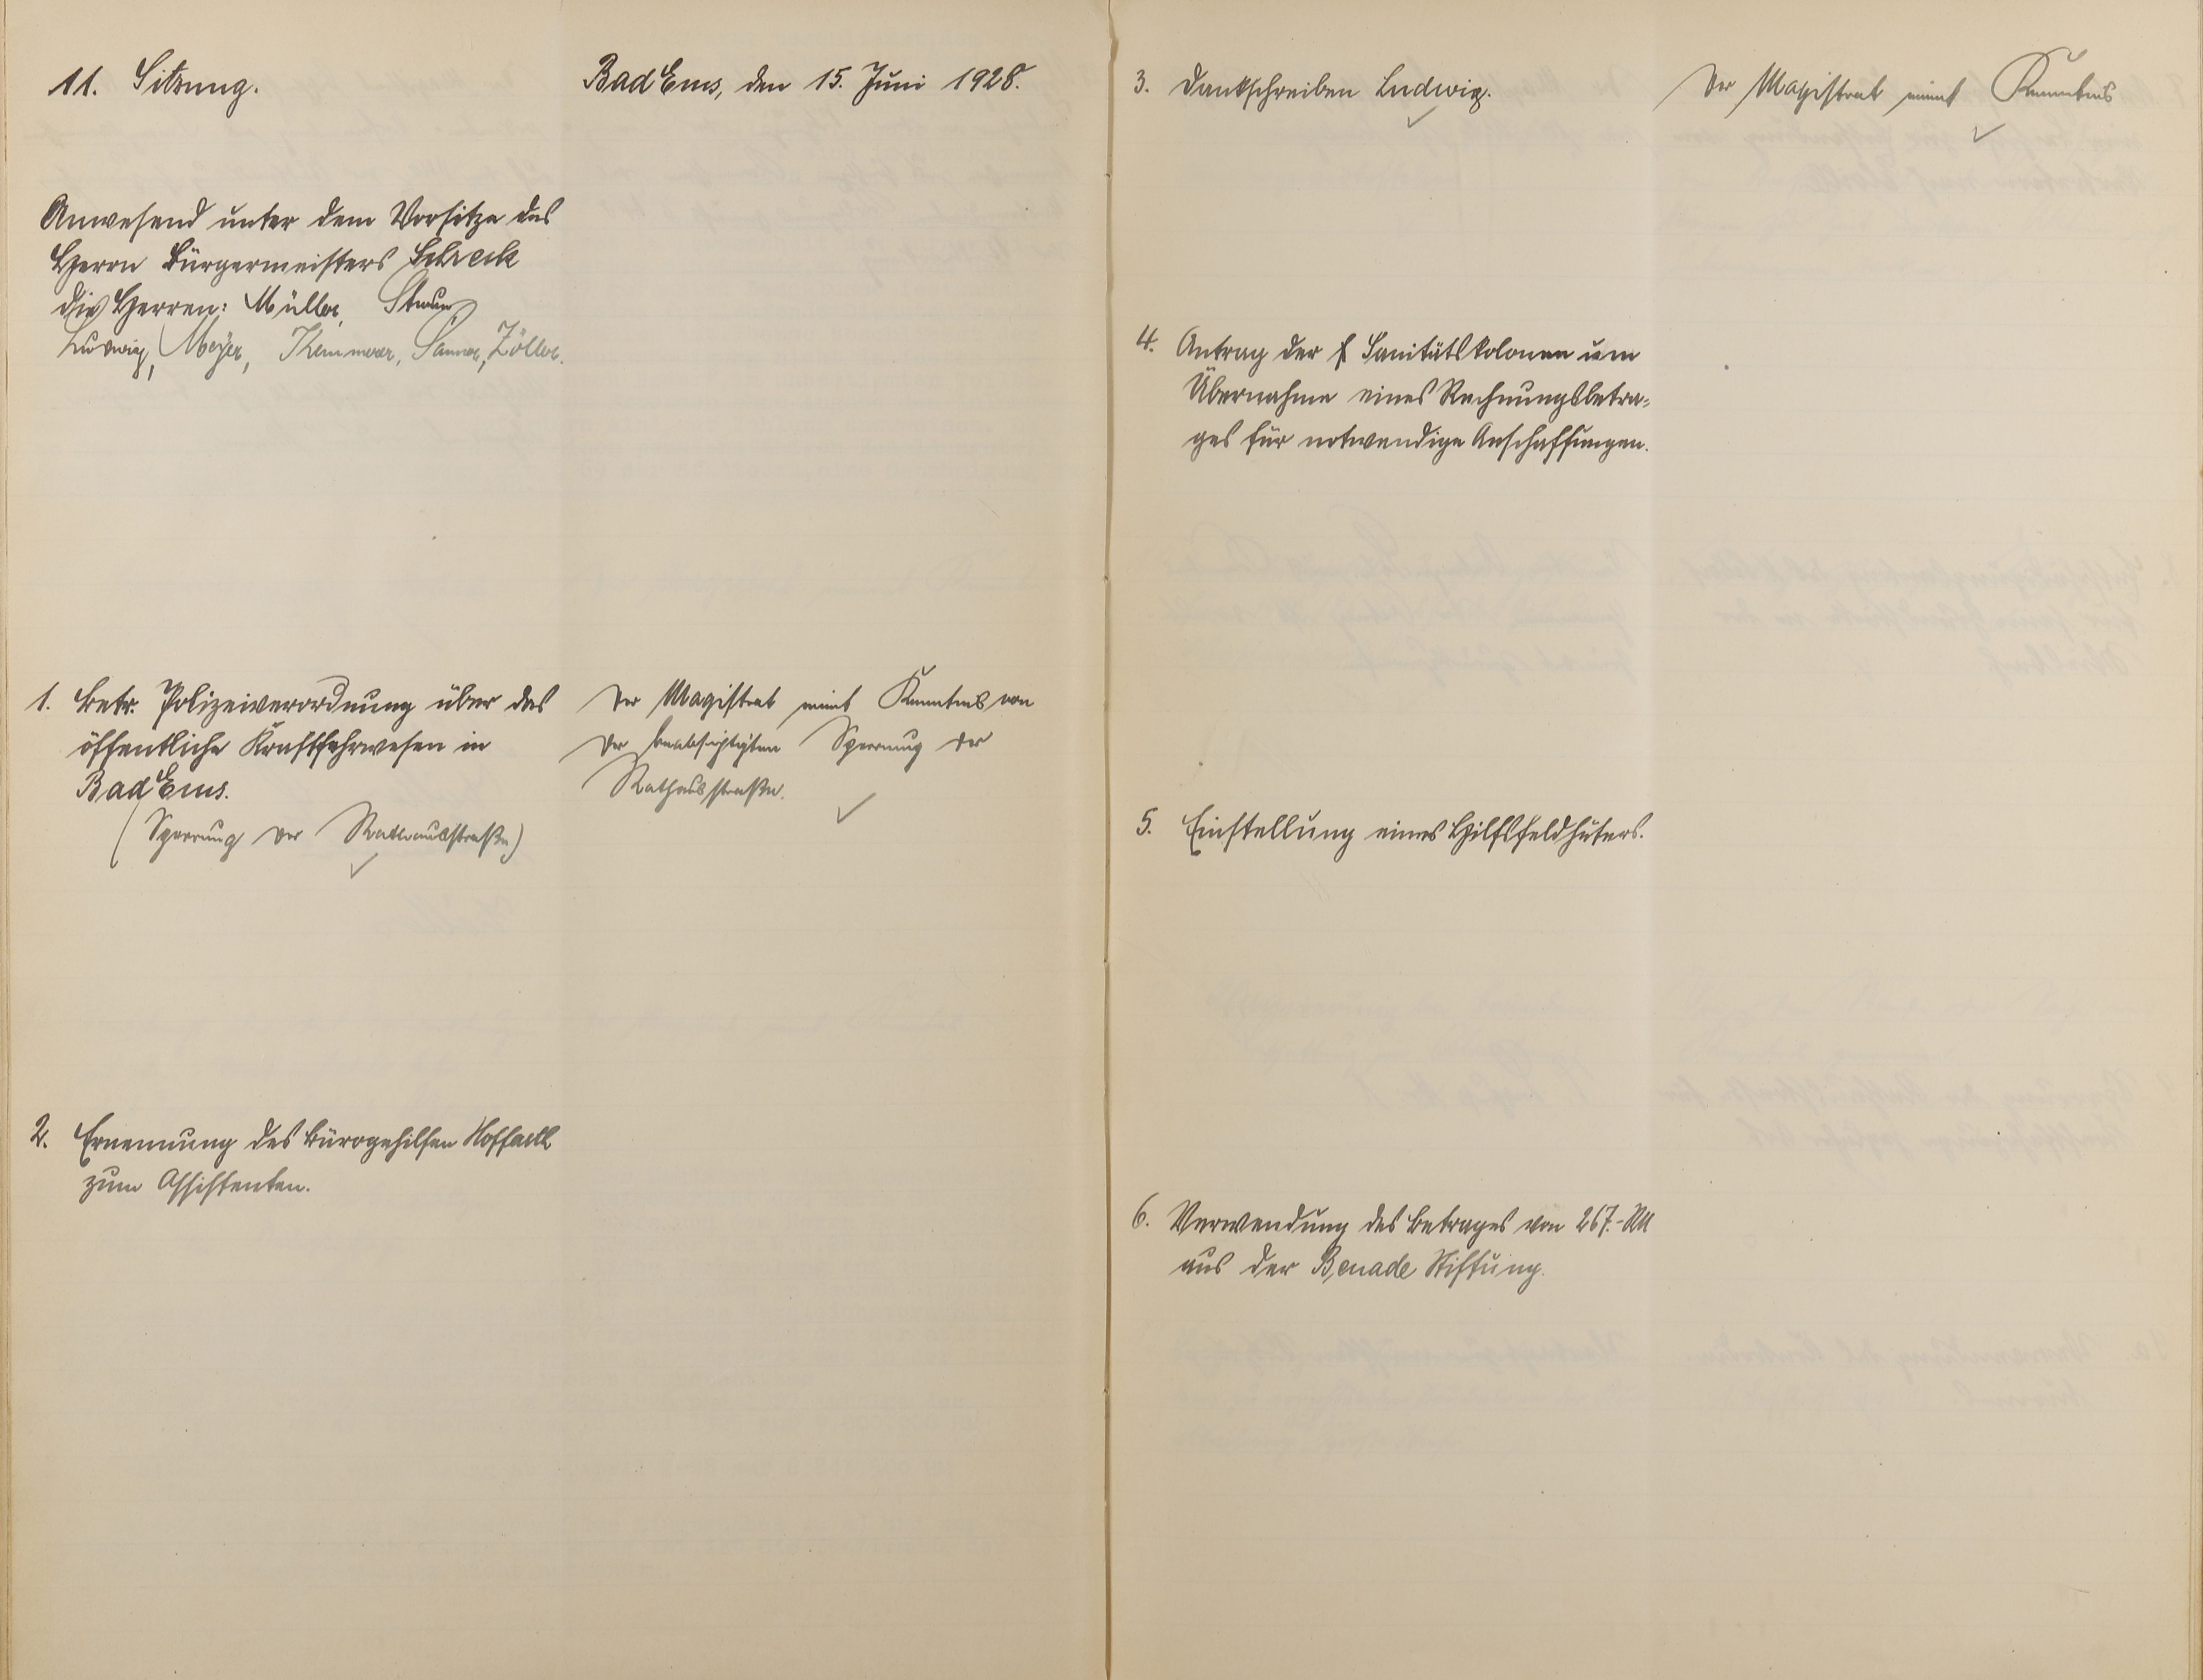 11. Sitzung.
Bad Ems, den 15. Juni 1928.
Anwesend unter dem Vorsitze des
Herrn Bürgermeisters Schreck
die Herren: Müller,
Ludwig, Meyer, Kemmerer, Sanner, Zöller.
1. Betr. Polizeiverordnung über das
öffentliche Kraftfahrwesen in
Bad Ems.
(Sperrung der Rathausstraße)
Der Magistrat nimt Kenntnis von
der beabsichtigten Sperrung der
Rathausstraße.
2. Ernennung des Bürogehilfen
zum Assistenten.
3. Dankschreiben Ludwig.
Der Magistrat nimt Kenntnis
4. Antrag der Sanitätskolonne um
Übernahme eines Rechnungsbetra-
ges für notwendige Anschaffungen.
5. Einstellung eines Hilfsfeldhüters.
6. Verwendung des Betrages von 267.- RM
aus der Benade Stiftung.